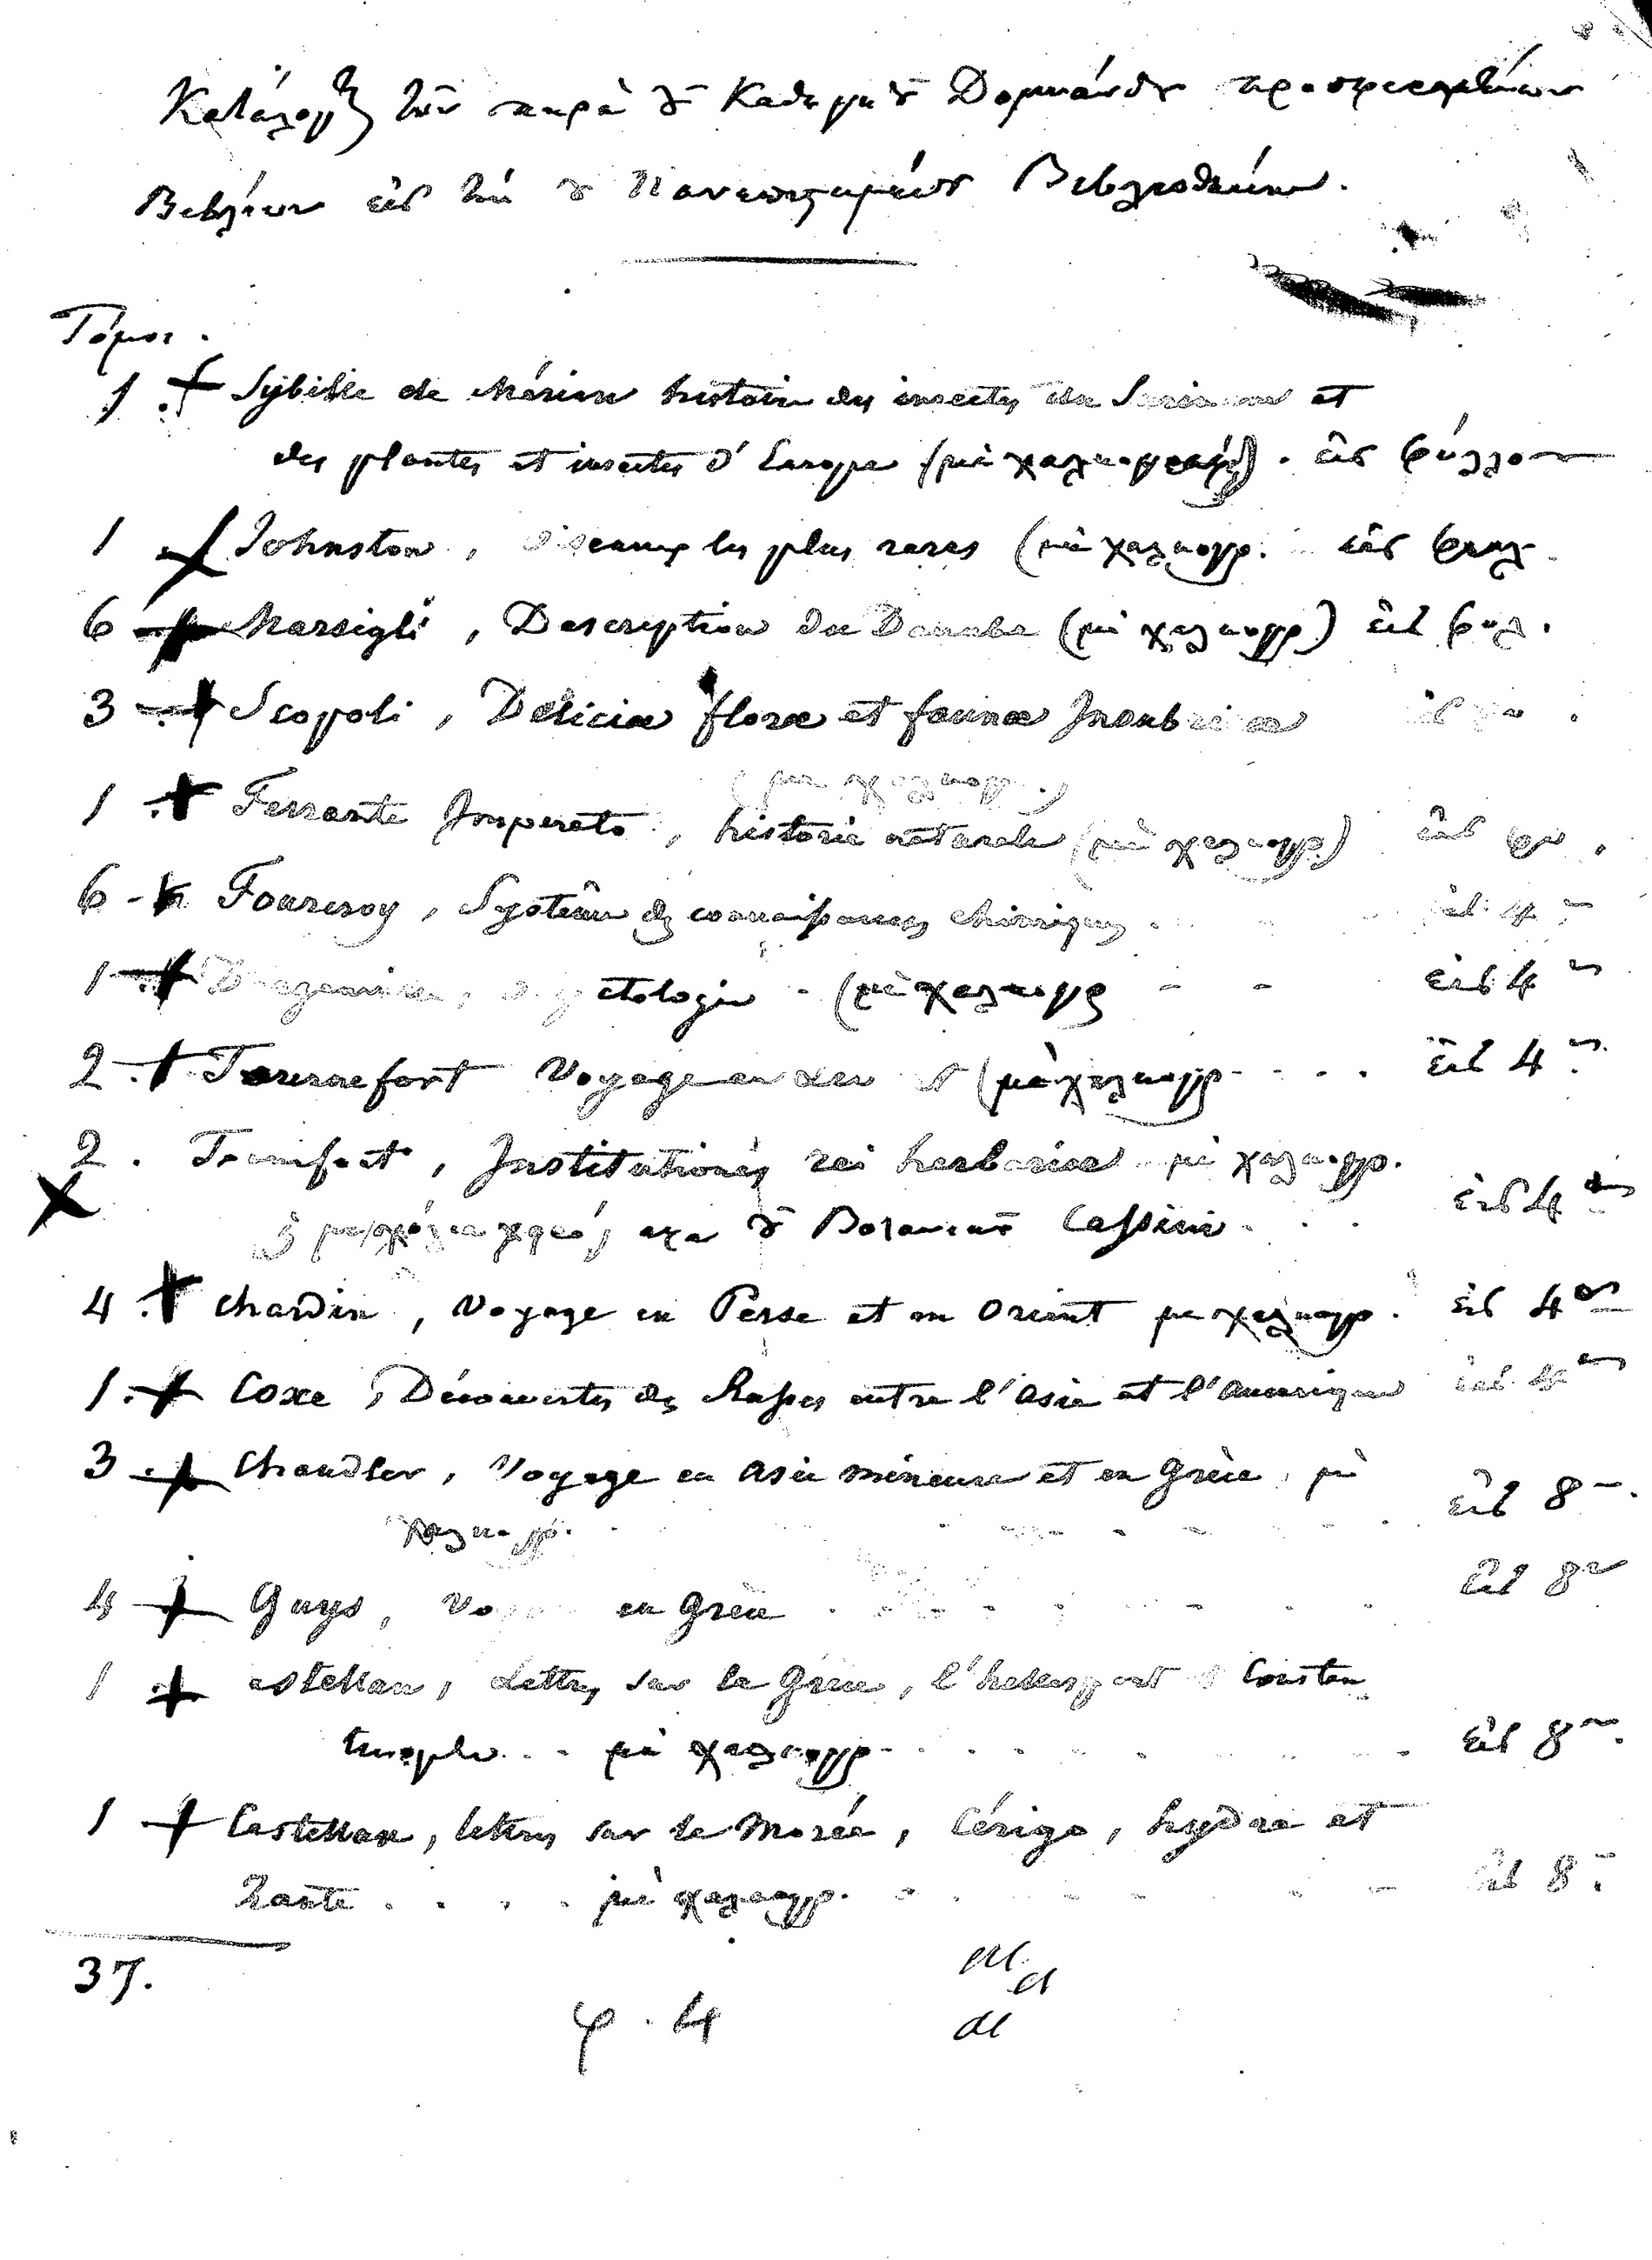 Κατάλογος τῶν παρὰ τοῦ Καθηγητοῦ Δομνάνδου προσφερομένων
Βιβλίων εἰς τὴν τοῦ Πανεπιστημίου Βιβλιοθήκην.
Τόμοι.
1 + Sybille de Mérian histoire des insectes de Surinam et
des plantes et insectes d'Europe (μὲ χαλκογραφίας). εἰς φύλλον
1 + Johnston, oiseaux les plus rares (μὲ χαλκογρ. εἰς φυλ.
6 + Marsigli, Description du Danube (μὲ χαλκογρ) εἰς φυλ.
3 + Scopoli, Deliciæ floræ et faunæ Insubricæ
(μὲ χαλκογρ.)
1 + Ferrante Imperato, historia naturale (μὲ χαλκογρ.) εἰς φυ.
6 + Fourcroy, Systême des connaissances chimiques εἰς 4ον
1 + (μὲ χαλκογρ εἰς 4ον
2 + Tournefort Voyage au Levant (μὲ χαλκογρ εἰς 4ον
2. Tournefort, Institutiones rei herbariæ μὲ χαλκογρ.
τοῦ Βοτανικοῦ Cassini εἰς 4ον
4 + Chardin, Voyage en Perse et en Orient με χαλκογρ. εἰς 4ον
1 + Coxe, Découvertes des Russes entre l'Asie et l'Amérique εἰς 4ον
3 + Chandler, Voyage en Asie mineure et en Grèce, μὲ
χαλκογρ. εἰς 8ον
4 + Guys, Voyage en Grèce εἰς 8ον
1 + Castellan, Lettres sur la Grèce, l'hellespont et Constan
tinople... μὲ χαλκογρ. εἰς 8ον
1 + Castellan, lettres sur la Morée, Cérigo, hydra et
Zante .... μὲ χαλκογρ. εἰς 8ον
37.
φ. 4